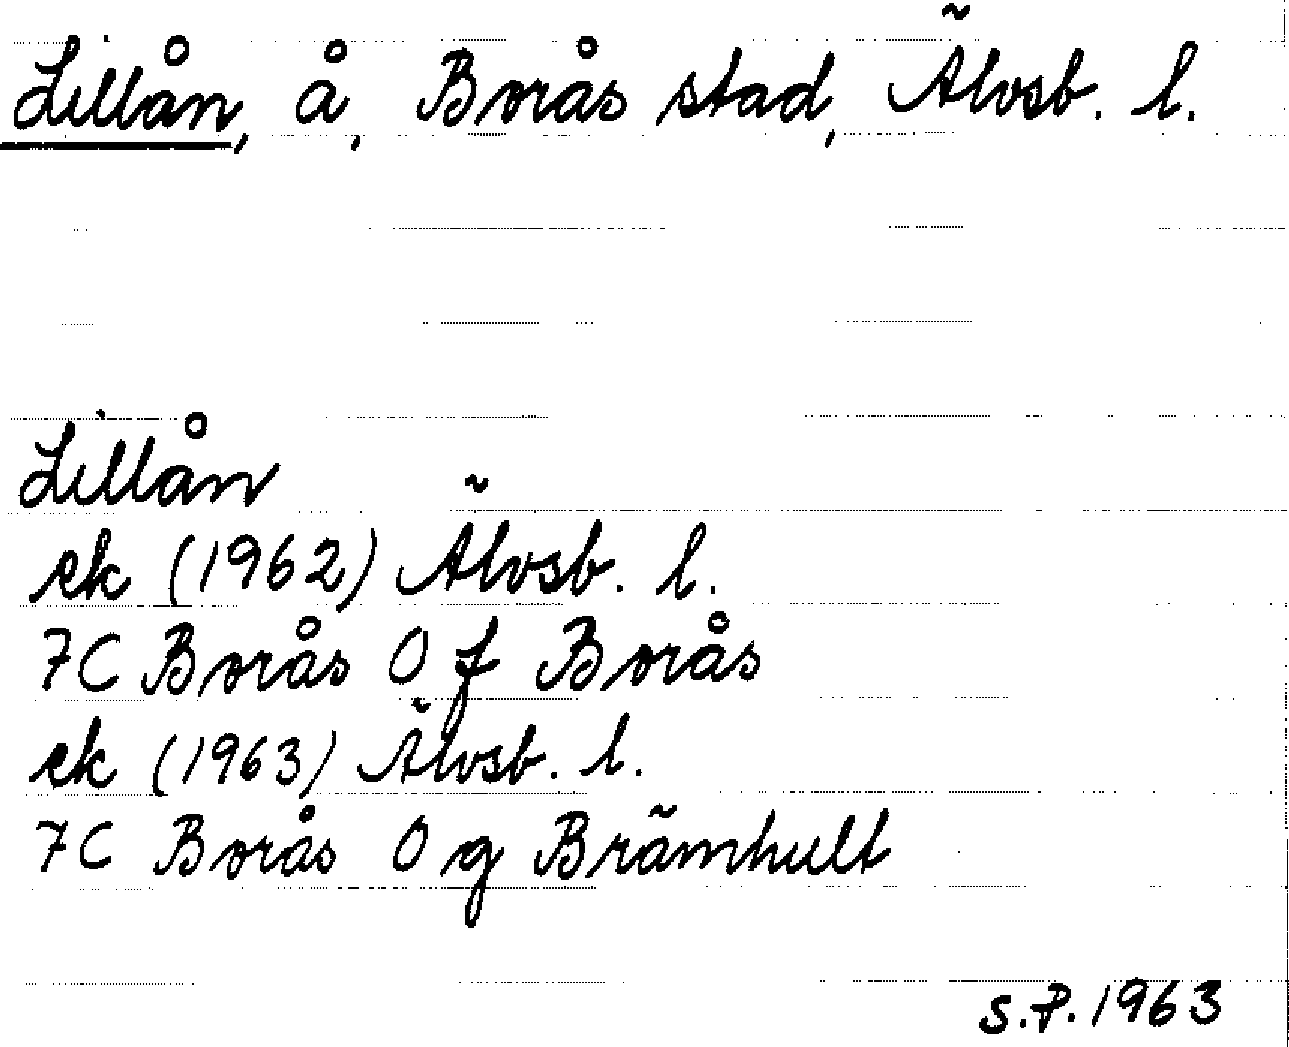 Lillån, å, Borås stad, Älvsb. l.
Lillån
ek (1962) Älvsb. l.
7C Borås 0 f Borås
ek (1963) Älvsb. l.
7C Borås 0 g Brämhult
S.P. 1963